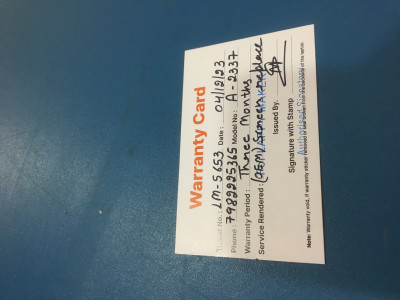 Warranty Card
Ticket No.: LM-5653 Date: 04/12/23
Phone: 7982225365 Model No: A-2337
Warranty Period: Three Months
Service Rendered: (OEM) Screen Replace
Issued By.
Signature with Stamp
Authorised Signatory
Note: Warranty void, if warranty sticker removed